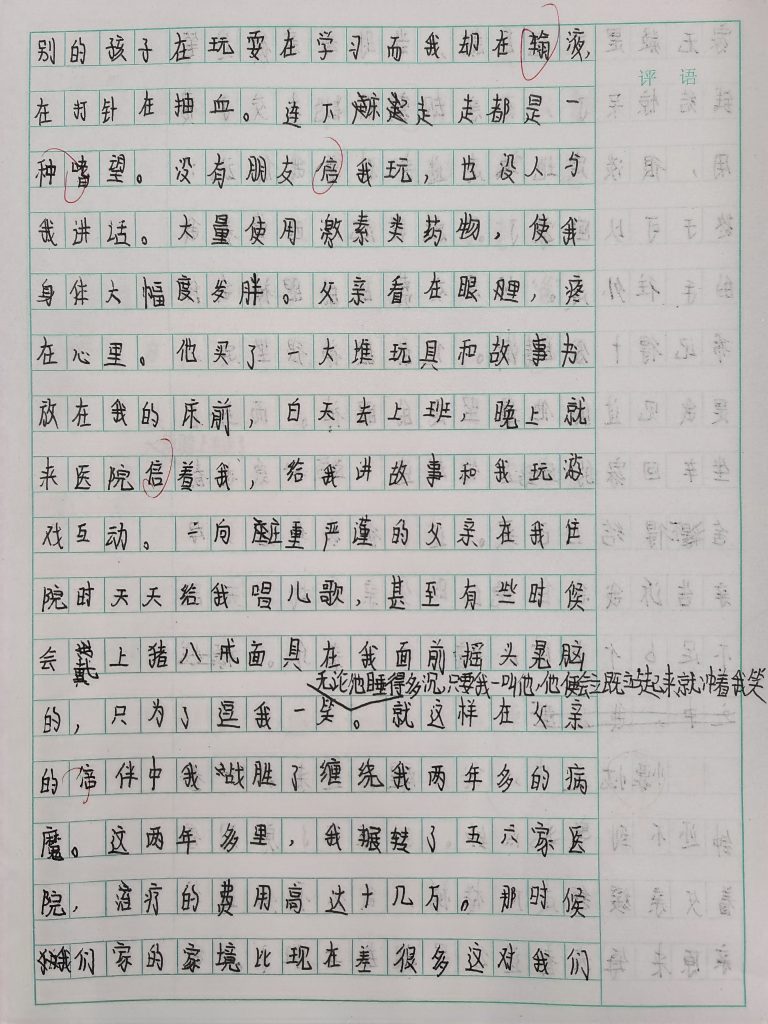 别的孩子在玩耍在学习而我却在输液,
评语
在打针在抽血。连下床走走都是一
种嗜望。没有朋友倍我玩，也没人与
我讲话。大量使用激素类药物，使我
身体大幅度发胖。父亲看在眼里，疼
在心里。他买了一大堆玩具和故事书
放在我的床前，白天去上班，晚上就
来医院倍着我，给我讲故事和我玩游
戏互动。一向庄重严谨的父亲在我住
院时天天给我唱儿歌，甚至有些时候
会戴上猪八戒面具在我面前摇头晃脑
无论他睡得多沉,只要我一叫他,他便会立既立起来就冲着我笑
的，只为了逗我一笑。就这样在父亲
的倍伴中我战胜了缠绕我两年多的病
魔。这两年多里，我辗转了五六家医
院，治疗的费用高达十几万。那时候
我们家的家境比现在差很多这对我们